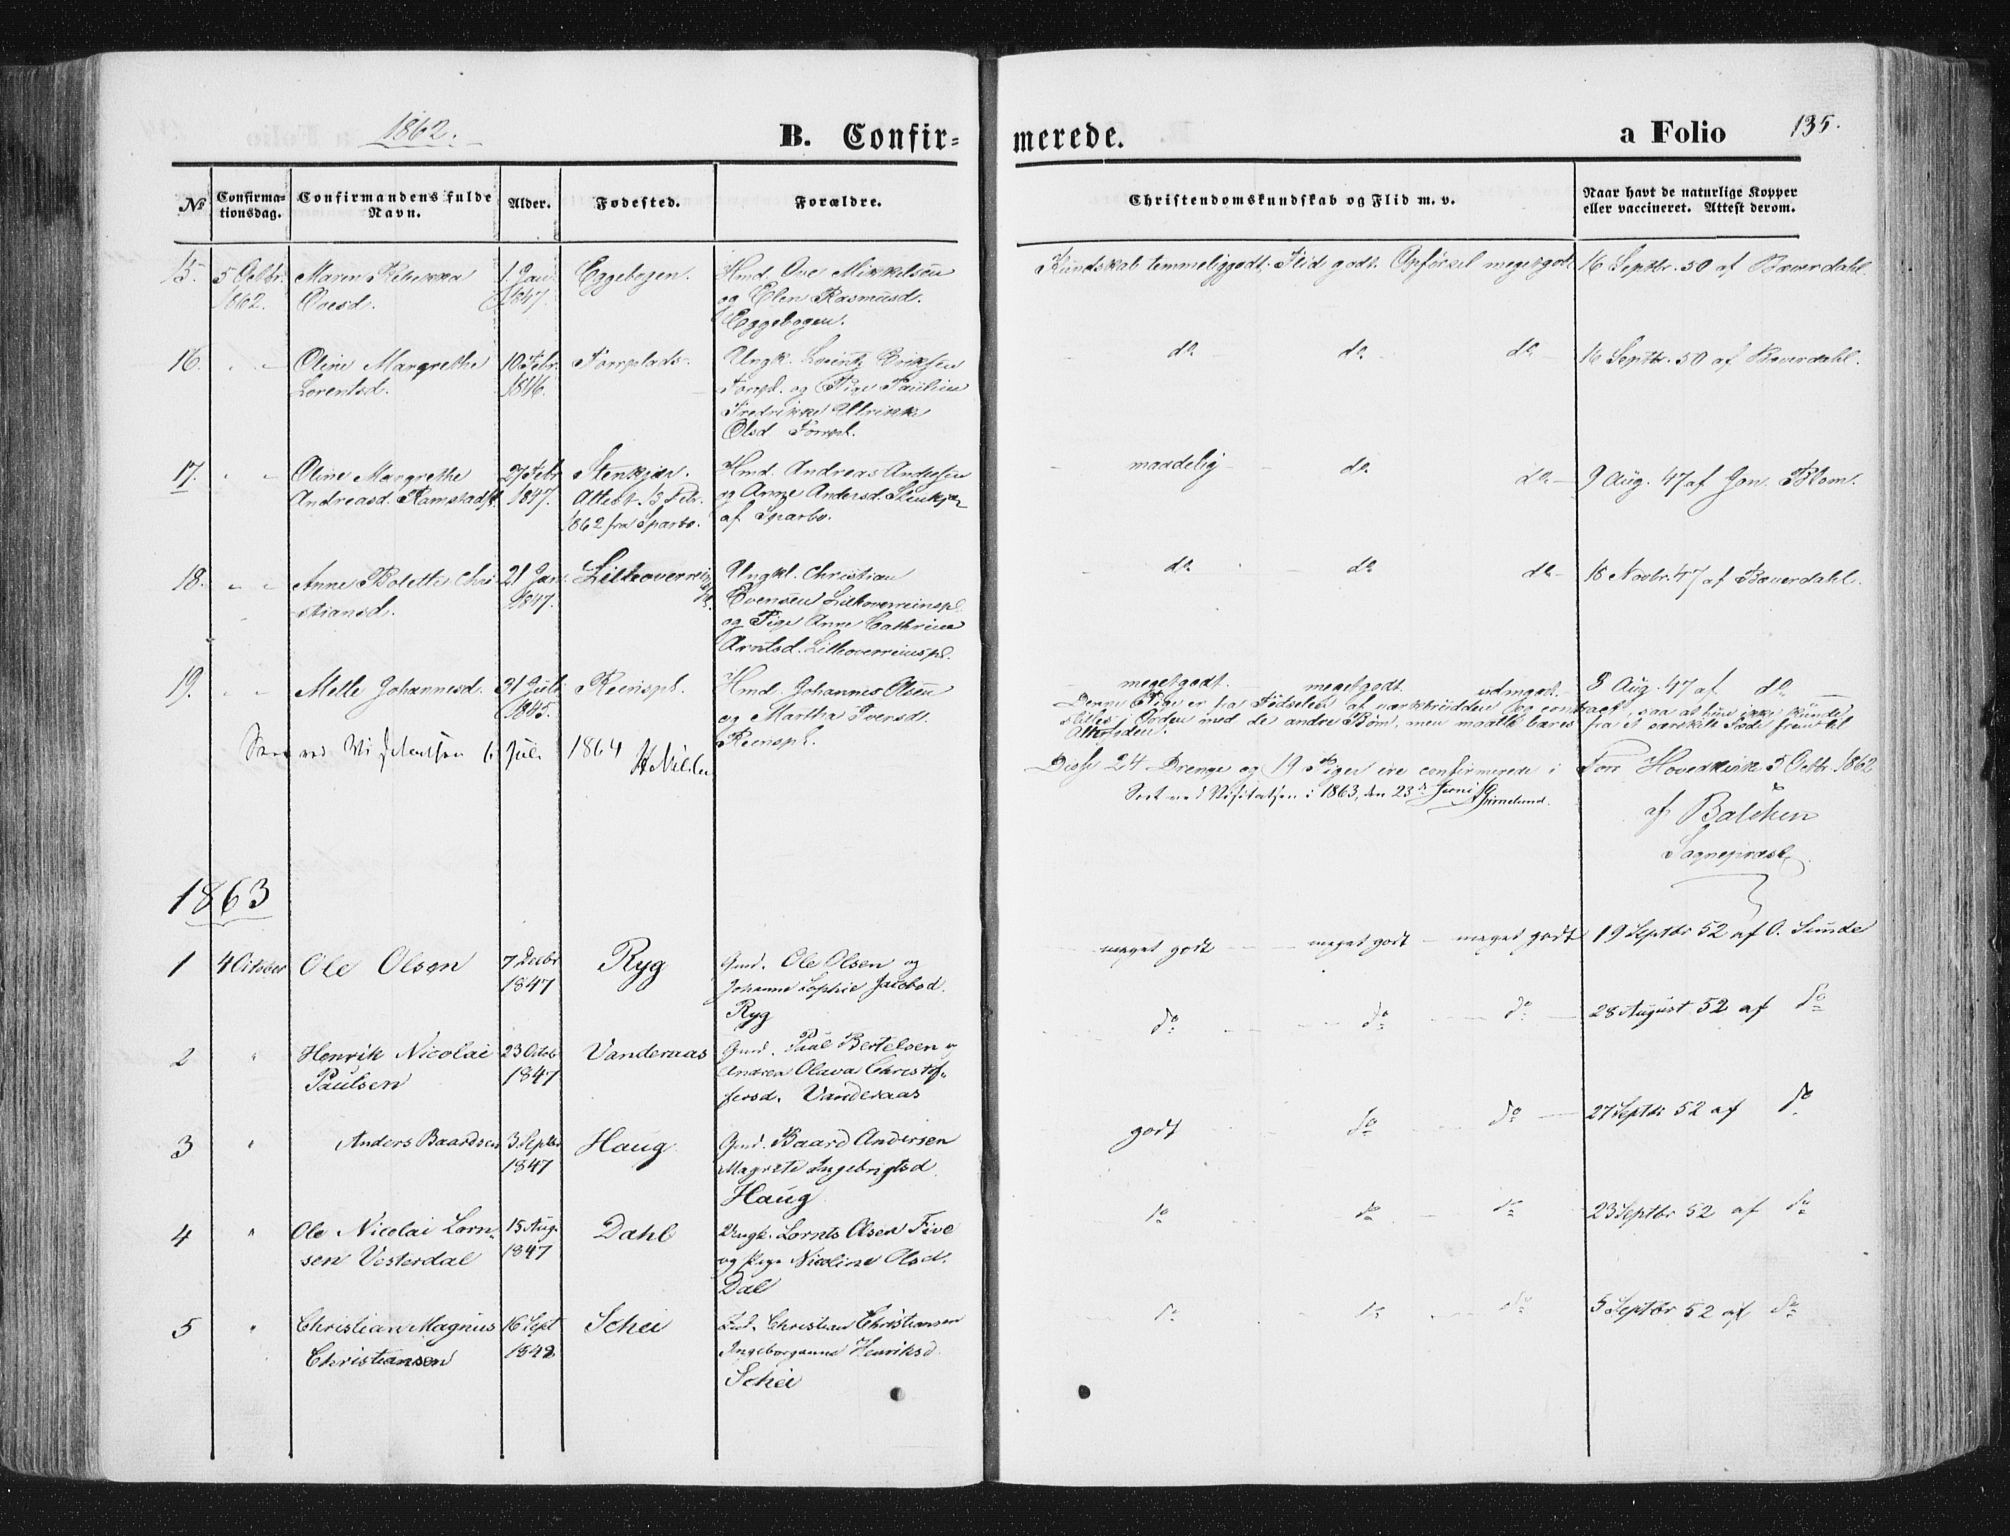 1862.
B. Confir-
merede.
a Folio 135.
No
Confirma-
tionsdag.
Confirmandens fulde
Navn.
Alder.
Fødested.
Forældre.
Christendomskundskab og Flid m. v.
Naar havt de naturlige Kopper
eller vaccineret. Attest derom.
15. 5 Octbr. 1862.
Maren Rebekka
Ovesd.
1 Jan
1847.
Eggebogen.
Hmd. Ove Mikkelsen
og Elen Rasmusd.
Eggebogen.
Kundskab temmeliggodt. Flid godt. Opførsel megetgodt
16 Septbr. 50 af Baverdahl.
16. " "
Oline Margrethe
Lorentsd.
10 Febr.
1846.
Forrplads.
Ungk. Lorentz Eriksen
Forrpl. og Pige Pauline
Fredrikke Ulrikke
Olsd Forrpl.
do do do
16 Septbr. 50 af Baverdahl.
17. " "
Oline Margrethe
Andreasd. Ramstad
27 Febr
1847.
Stenkjær.
Attest. 13 Febr.
1862 fra Sparbo.
Hmd. Andreas
og Anne Andersd. Stenkjær
af Sparbo.
maadelig do do
9 Aug. 47 af Jon. Blom.
18. " "
Anne Bolette Chri-
stiansd.
21 Jan.
1847.
Lilleoverrein
pl.
Ungkl. Christian
Evensen Lilleoverreinspl.
og Pige Anne Cathrine
Arntsd. Lilleoverreinspl.
do do do
18 Novbr. 47 af Baverdahl.
19. " "
Mette Johannesd.
31 Juli
1845.
Reinspl.
Hmd. Johannes Olsen
og Martha Iversd.
Reinspl.
megetgodt. megetgodt. udmgodt.
8 Aug. 47 af do
Denne Pige er fra Fødselen af værkbrudden og contract, saa at hun ikke kunde
stilles i Orden med de andre Børn, men maatte bæres fra et særskilt Sæde frem til
Alterfoden.
Juli 1864
Disse 24 Drenge og 19 Piger ere confirmerede i Forr Hovedkirke 5 Octbr. 1862
Seet ved Visitatsen i 1863, den 23de Juni
af Balchen
Sognepræst.
1863
1 4 October
Ole Olsen
7 Decbr
1847
Ryg
Gmd. Ole Olsen og
Johanna Sophie Jacobsd.
Ryg
meget godt meget godt meget godt
19 Septbr 52 af O. Sunde
2 "
Henrik Nicolai
Paulsen
23 Octob
1847
Vanderaas
Gmd. Paul Bertelsen o
Andrea Olava Christof-
fersd. Vanderaas
do do do
28 August 52 af do
3 "
Anders Baardsen
3. Septbr
1847
Haug
Gmd. Baard Andersen
Magrete Ingebrigtsd.
Haug
godt do do
27 Septbr 52 af do
4 "
Ole Nicolai Lorn-
sen Vesterdal
15 Aug.
1847
Dahl
Ungk. Lornts Olsen Five
og Pige Nicoline Olsd.
Dal
do do do
23 Septbr 52 af do
5 "
Christian Magnus
Christiansen
16 Sept
1842
Schei
Ind. Christian Christiansen
Ingeboranna Henriksd.
Schei
do do do
5 Septbr 52 af do